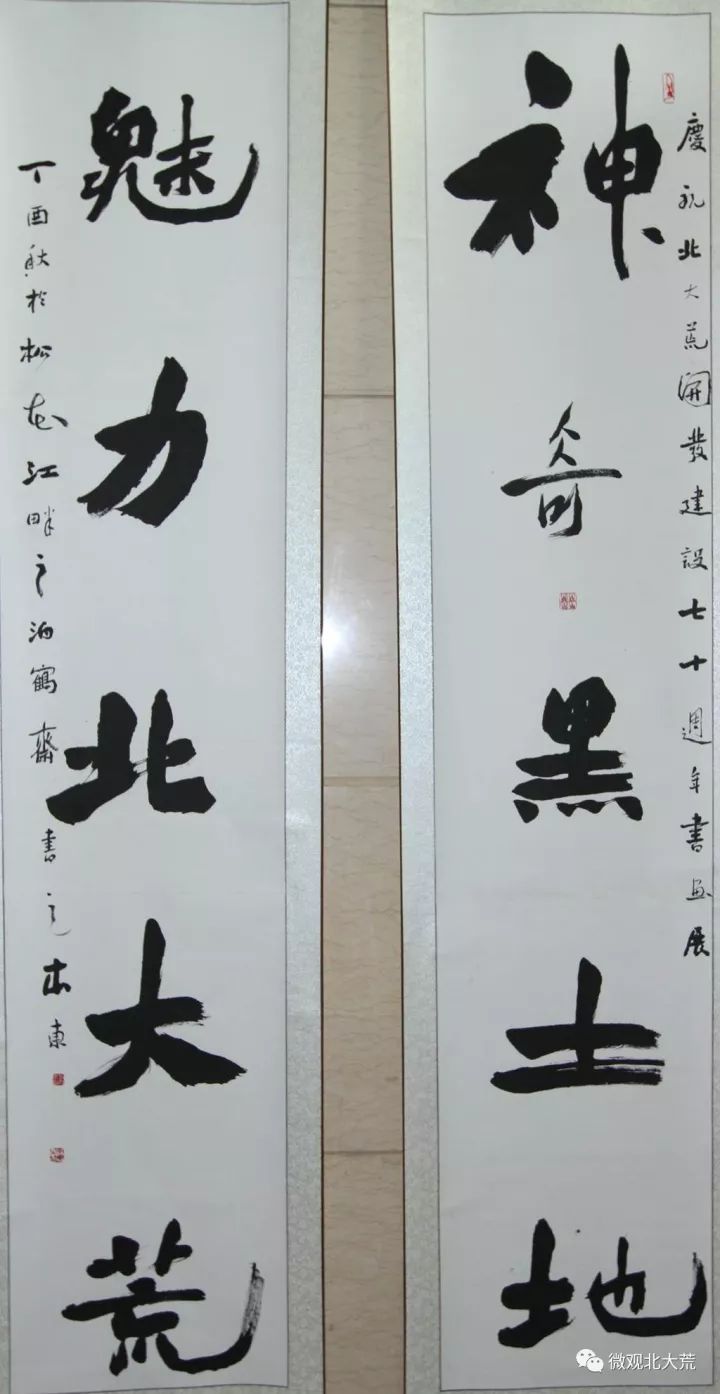 慶祝北大荒開發建設七十週年書画展
神奇黑土地
魅力北大荒
丁酉秋於松花江畔之泊鶴齋書之木東
微观北大荒